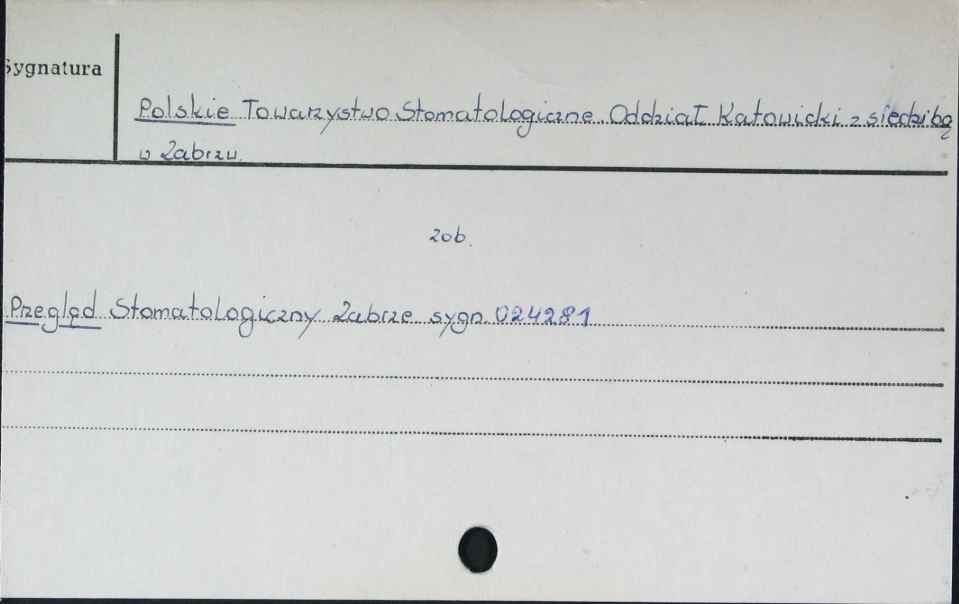 Sygnatura
Polskie Towarzystwo Stomatologiczne Oddział Katowicki z siedzibą
w Zabrzu.
zob.
Przegląd Stomatologiczny Zabrze sygn. 024281